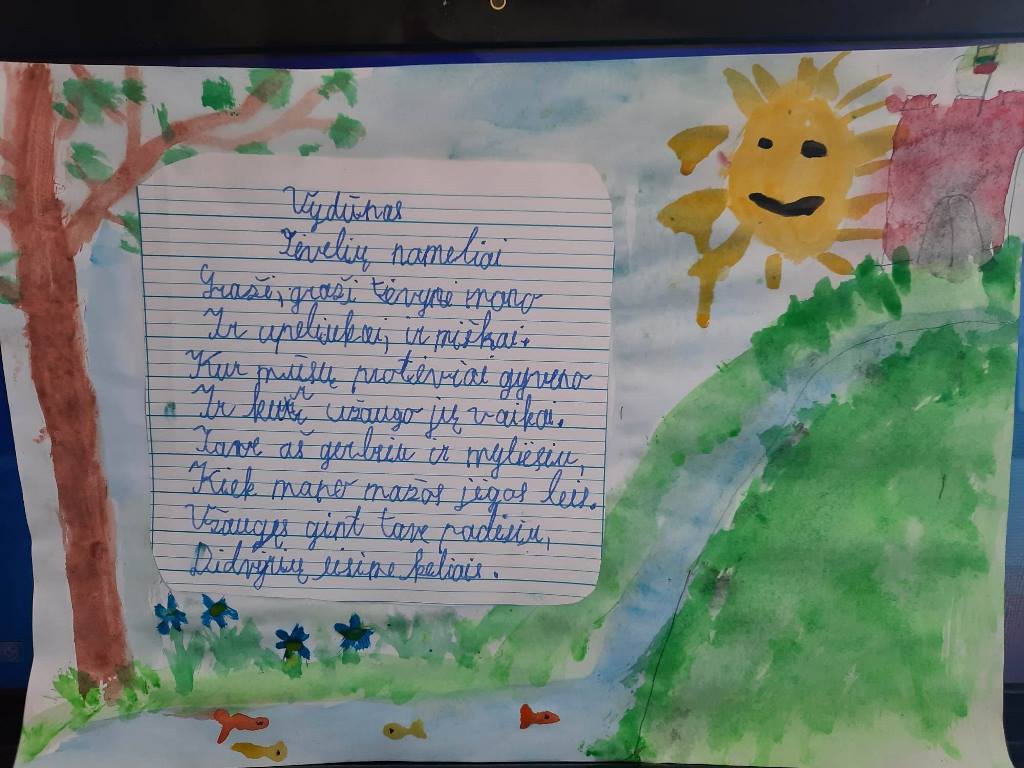 Vydūnas
Tėvelių nameliai
Graži, graži tėvynė mano
Ir upeliukai, ir miškai.
Kur mūsų protėviai gyveno
Ir kur užaugo jų vaikai.
Tave aš gerbsiu ir mylėsiu,
Kiek mano mažos jėgos leis.
Užaugęs gint tave padėsiu,
Didvyrių eisime keliais.